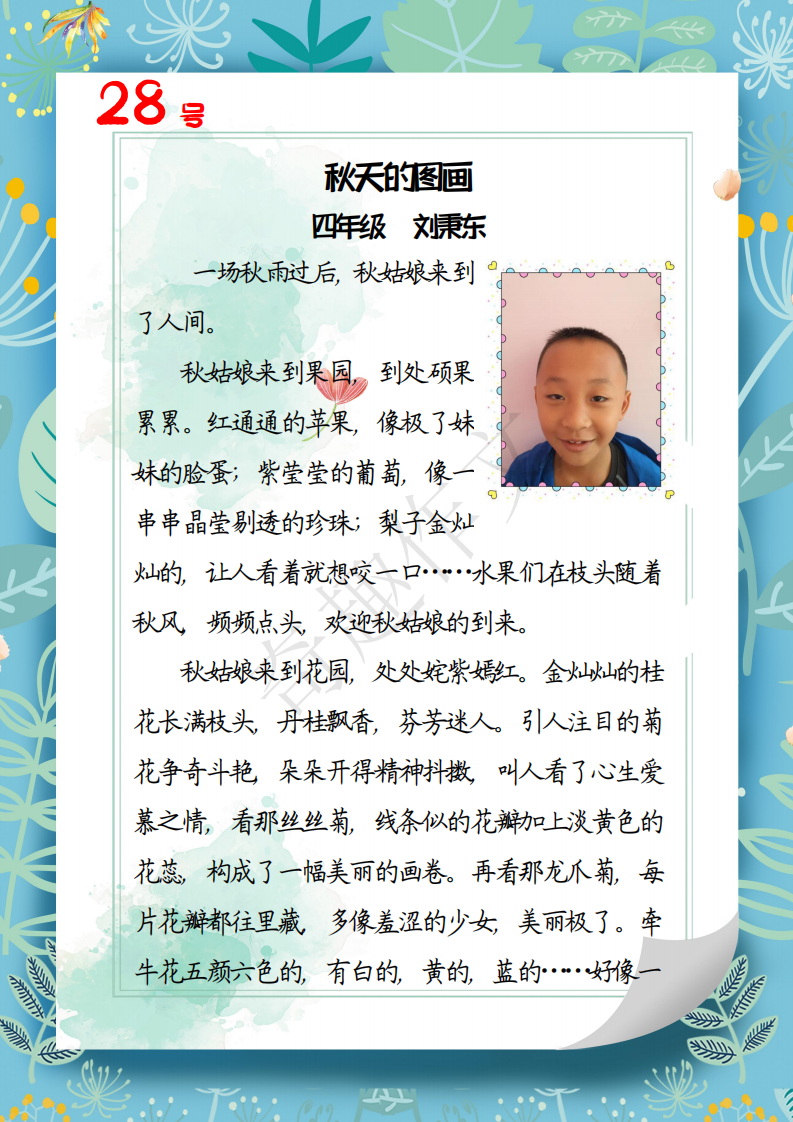 28号
秋天的图画
四年级 刘秉东
一场秋雨过后，秋姑娘来到
了人间。
秋姑娘来到果园，到处硕果
累累。红通通的苹果，像极了妹
妹的脸蛋；紫莹莹的葡萄，像一
串串晶莹剔透的珍珠；梨子金灿
灿的，让人看着就想咬一口……水果们在枝头随着
秋风，频频点头，欢迎秋姑娘的到来。
秋姑娘来到花园，处处姹紫嫣红。金灿灿的桂
花长满枝头，丹桂飘香，芬芳迷人。引人注目的菊
花争奇斗艳，朵朵开得精神抖擞，叫人看了心生爱
慕之情，看那丝丝菊，线条似的花瓣加上淡黄色的
花蕊，构成了一幅美丽的画卷。再看那龙爪菊，每
片花瓣都往里藏，多像羞涩的少女，美丽极了。牵
牛花五颜六色的，有白的，黄的，蓝的……好像一
奇趣作文